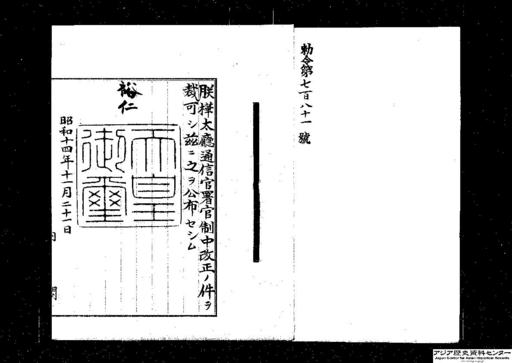 勅令第七百八十一號
朕樺太廳通信官署官制中改正ノ件ヲ
裁可シ茲ニ之ヲ公布セシム
裕仁
天皇
御璽
昭和十四年十一月二十一日
アジア歴史資料センター
Japan Center for Asian Historical Records